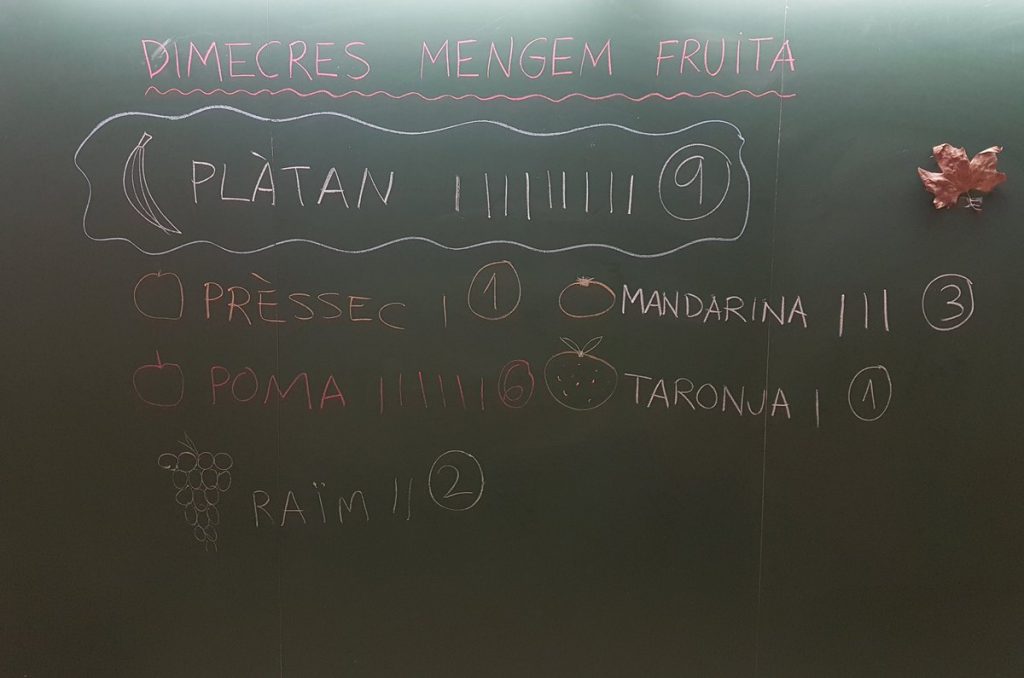 DIMECRES MENGEM FRUITA
PLÀTAN ||||||||| 9
PRÈSSEC | 1
MANDARINA ||| 3
POMA |||||| 6
TARONJA | 1
RAÏM || 2